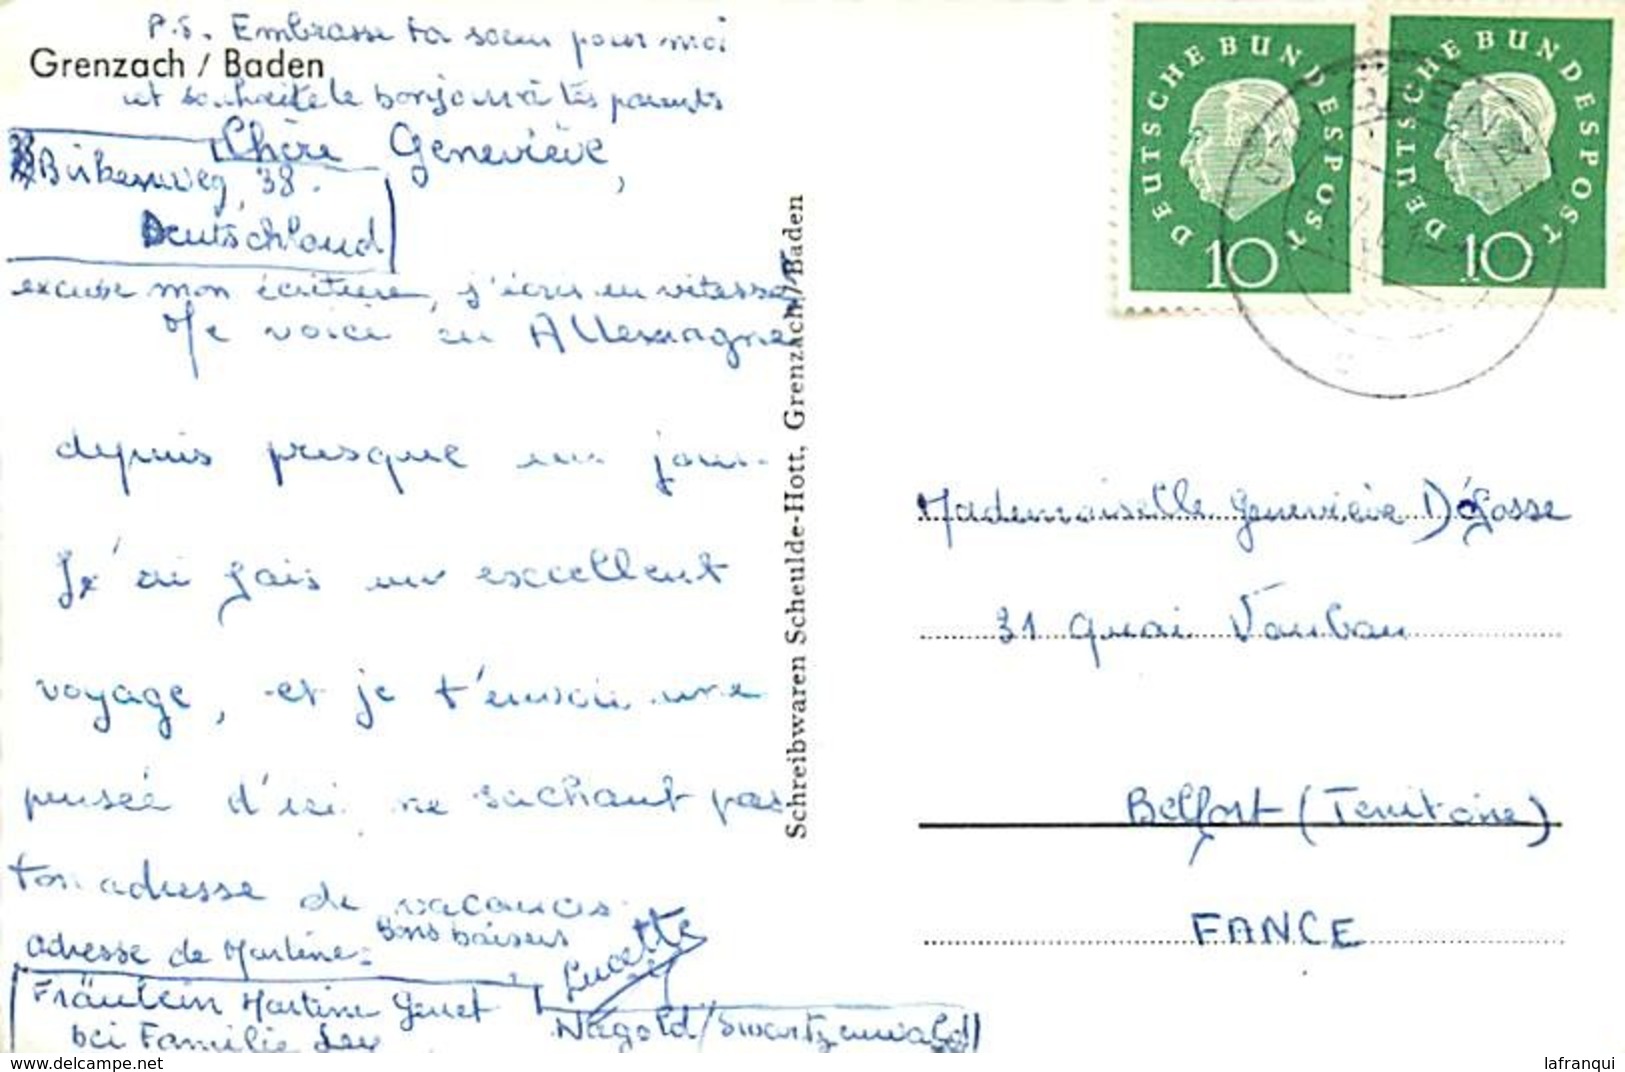 P.S. Embrasse ta soeur pour moi
Grenzach / Baden
et souhaite le bonjour à tes parents
Chère Geneviève,
Birkenweg, 38.
Deutschland
excuse mon écriture, j'écris en vitesse
Me voici en Allemagne
depuis presque un jour.
J'ai fais un excellent
voyage, et je t'envoie une
pensée d'ici ne sachant pas
ton adresse de vacances.
Bons baisers
Lucette
adresse de Martine:
Fräulein Martine Genet
bei Familie
Nagold/Swartzenwald
Schreibwaren Scheulde-Hott, Grenzach/Baden
DEUTSCHE BUNDESPOST
10
DEUTSCHE BUNDESPOST
10
Mademoiselle Geneviève Défosse
31 Quai Vauban
Belfort (Territoire)
FANCE
lafranqui